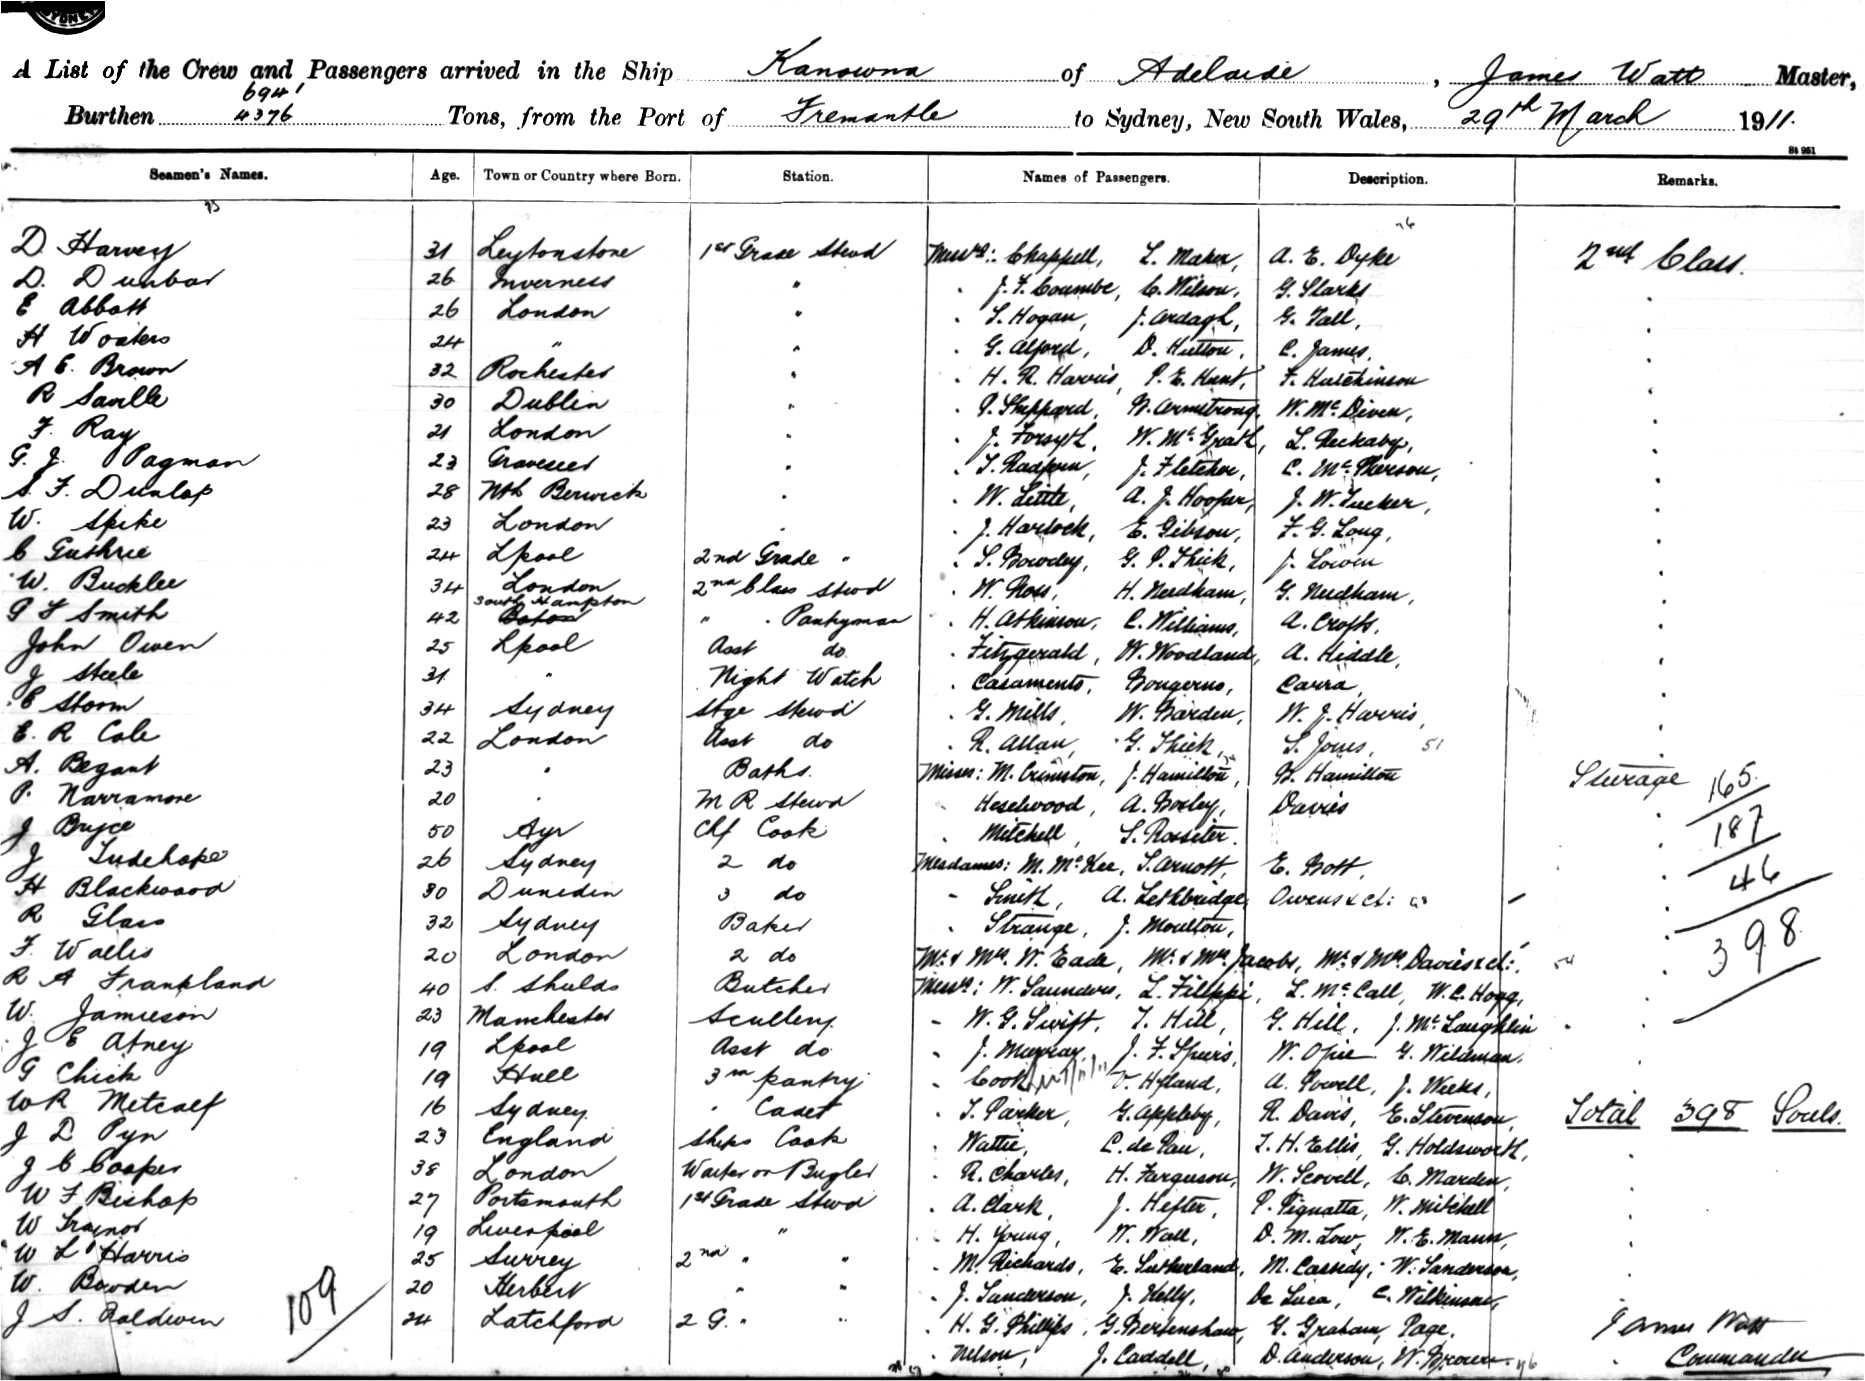 SYDNEY
A List of the Crew and Passengers arrived in the Ship Kanowna of Adelaide, James Watt Master,
6941
Burthen 4376 Tons, from the Port of Fremantle to Sydney, New South Wales, 29th March 1911.
St 951
Seamen's Names. Age. Town or Country where Born. Station. Names of Passengers. Description. Remarks.
D. Harvey 31 Leytonstone 1st Grade Stewd Messrs: Chappell, L. Maher, A. E. Dyke 2nd Class.
D. Dunbar 26 Inverness " J. F. Coumbe, C. Wilson, G. Starks
E Abbott 26 London " S. Hogan, J. Ardagh, G. Tall,
H Woaters 24 " " G. Alford, D. Hutton, C. James,
A E. Brown 32 Rochester " H. R. Harris, P. E. Hunt, F. Hutchinson
R Saville 30 Dublin " P. Sheppard, G. Armstrong, W. McDiven,
F. Ray 21 London " J. Forsyth, W. McGrath, L. Reckaby,
G. J. Pagman 23 Gravesend " T. Radforn, J. Fletcher, C. McPherson,
S. F. Dunlop 28 Nth Berwick " W. Little, A. J. Hooper, J. W. Tucker,
W. Spike 23 London " J. Harlock, E. Gibson, F. G. Long,
C Guthrie 24 Lpool 2nd Grade " S. Bowdey, G. P. Thick, J. Lowen
W. Bucklee 34 London 2nd Class Stewd W. Ross, H. Needham, G. Needham,
South Hampton
P F Smith 42 " Pantryman H. Atkinson, C. Williams, A. Crofts,
John Owen 25 Lpool Asst do Fitzgerald, W. Woodland, A. Hiddle,
J Steele 31 " Night Watch Casaments, Bongerno, Carra,
E Storm 34 Sydney Stge Stewd G. Mills, W. Barden, W. J. Harris,
E. R Cole 22 London Asst do R. Allan, G. Thick, S. Jones, 51
A. Begant 23 " Baths. Misses: M. Crimston, J. Hamilton, G. Hamilton Steerage 165
P. Narramore 20 " M R Stewd Heselwood, A. Bosley, Davies 187
J Bryce 50 Ayr Chf Cook Mitchell, S. Rosseter.
J Tudehope 26 Sydney 2 do Mesdames: M. McKee, S. Arnott, E. Bott, 46
H Blackwood 30 Dunedin 3 do Smith, A. Lethbridge, Owens & ch:
R Glass 32 Sydney Baker Strange, J. Moulton, 398
F. Wallis 20 London 2 do Mr & Mrs W. Eade, Mr & Mrs Jacobs, Mr & Mrs Davies & ch:
R A Frankland 40 S. Shulds Butcher Messrs: W. Saunders, L. Filippi, L. McCall, W. C. Hogg,
W. Jamieson 23 Manchester Scullery W. G. Swift, T. Hill, G. Hill, J. McLaughlin
J E Atney 19 Lpool Asst do J. Murray, J. F. Speirs, W. Opie G. Wildman.
G Chick 19 Hull 3rd pantry Cook V. Hyland, A. Powell, J. Weeks,
W R Metcalf 16 Sydney " Cadet T. Parker, G. Appleby, R. Davis, E. Stevenson, Total 398 Souls.
J D Pyn 23 England Ships Cook Wattie, C. de Pau, T. H. Ellis, G. Holdsworth,
J C Cooper 38 London Waiter or Bugler R. Charles, H. Ferguson, W. Scovell, C. Marden,
W F Bishop 27 Portsmouth 1st Grade Stewd A. Clark, J. Hefter, P. Pignatta, W. Mitchell
W Traynor 19 Liverpool " H. Young, W. Wall, D. M. Low, W. E. Mann,
W L Harris 25 Surrey 2nd " " M. Richards, E. Sutherland, M. Cassidy, W. Sanderson,
W. Bowden 20 Herbert " " J. Sanderson, J. Kelly, De Luca, C. Wilkinson,
J S. Baldwin 109 24 Latchford 2 G. " " H. G. Phillips, G. Bertenshaw, G. Graham, Page. James Watt
Nelson, J. Caddell, D. Anderson, W. Brown Commander